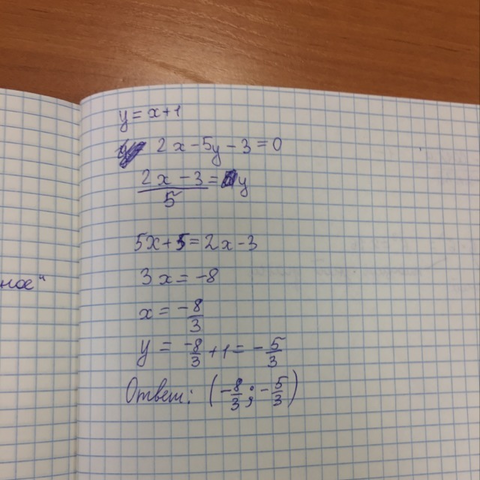 y = x+1
2x - 5y - 3 = 0
(2x - 3)/5 = y
5x + 5 = 2x - 3
3x = -8
ное"
x = -8/3
y = -8/3 + 1 = -5/3
Ответ: (-8/3; -5/3)